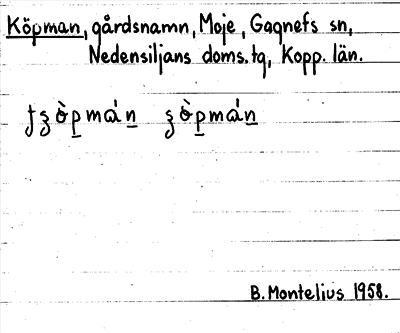 Köpman, gårdsnamn, Moje, Gagnefs sn,
Nedensiljans doms. tg, Kopp. län.
B. Montelius 1958.